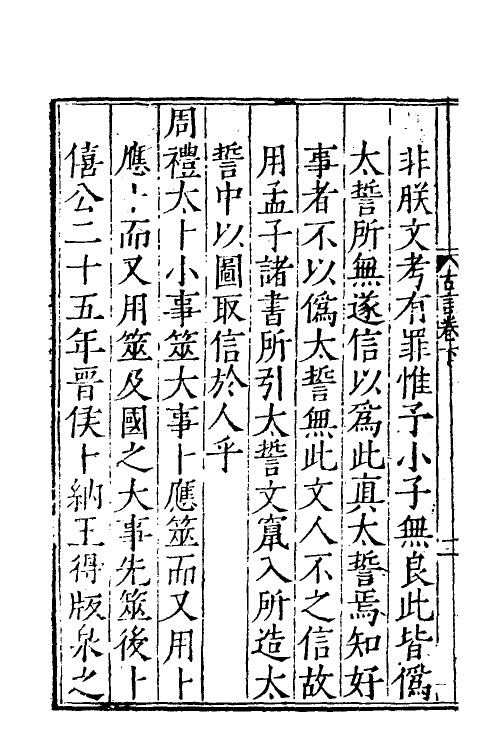 古言卷下
二
非朕文考有罪惟予小子無良此皆僞
太誓所無遂信以爲此真太誓焉知好
事者不以僞太誓無此文人不之信故
用孟子諸書所引太誓文竄入所造太
誓中以圖取信於人乎
周禮太卜小事筮大事卜應筮而又用卜
應卜而又用筮及國之大事先筮後卜
僖公二十五年晋侯卜納王得版泉之